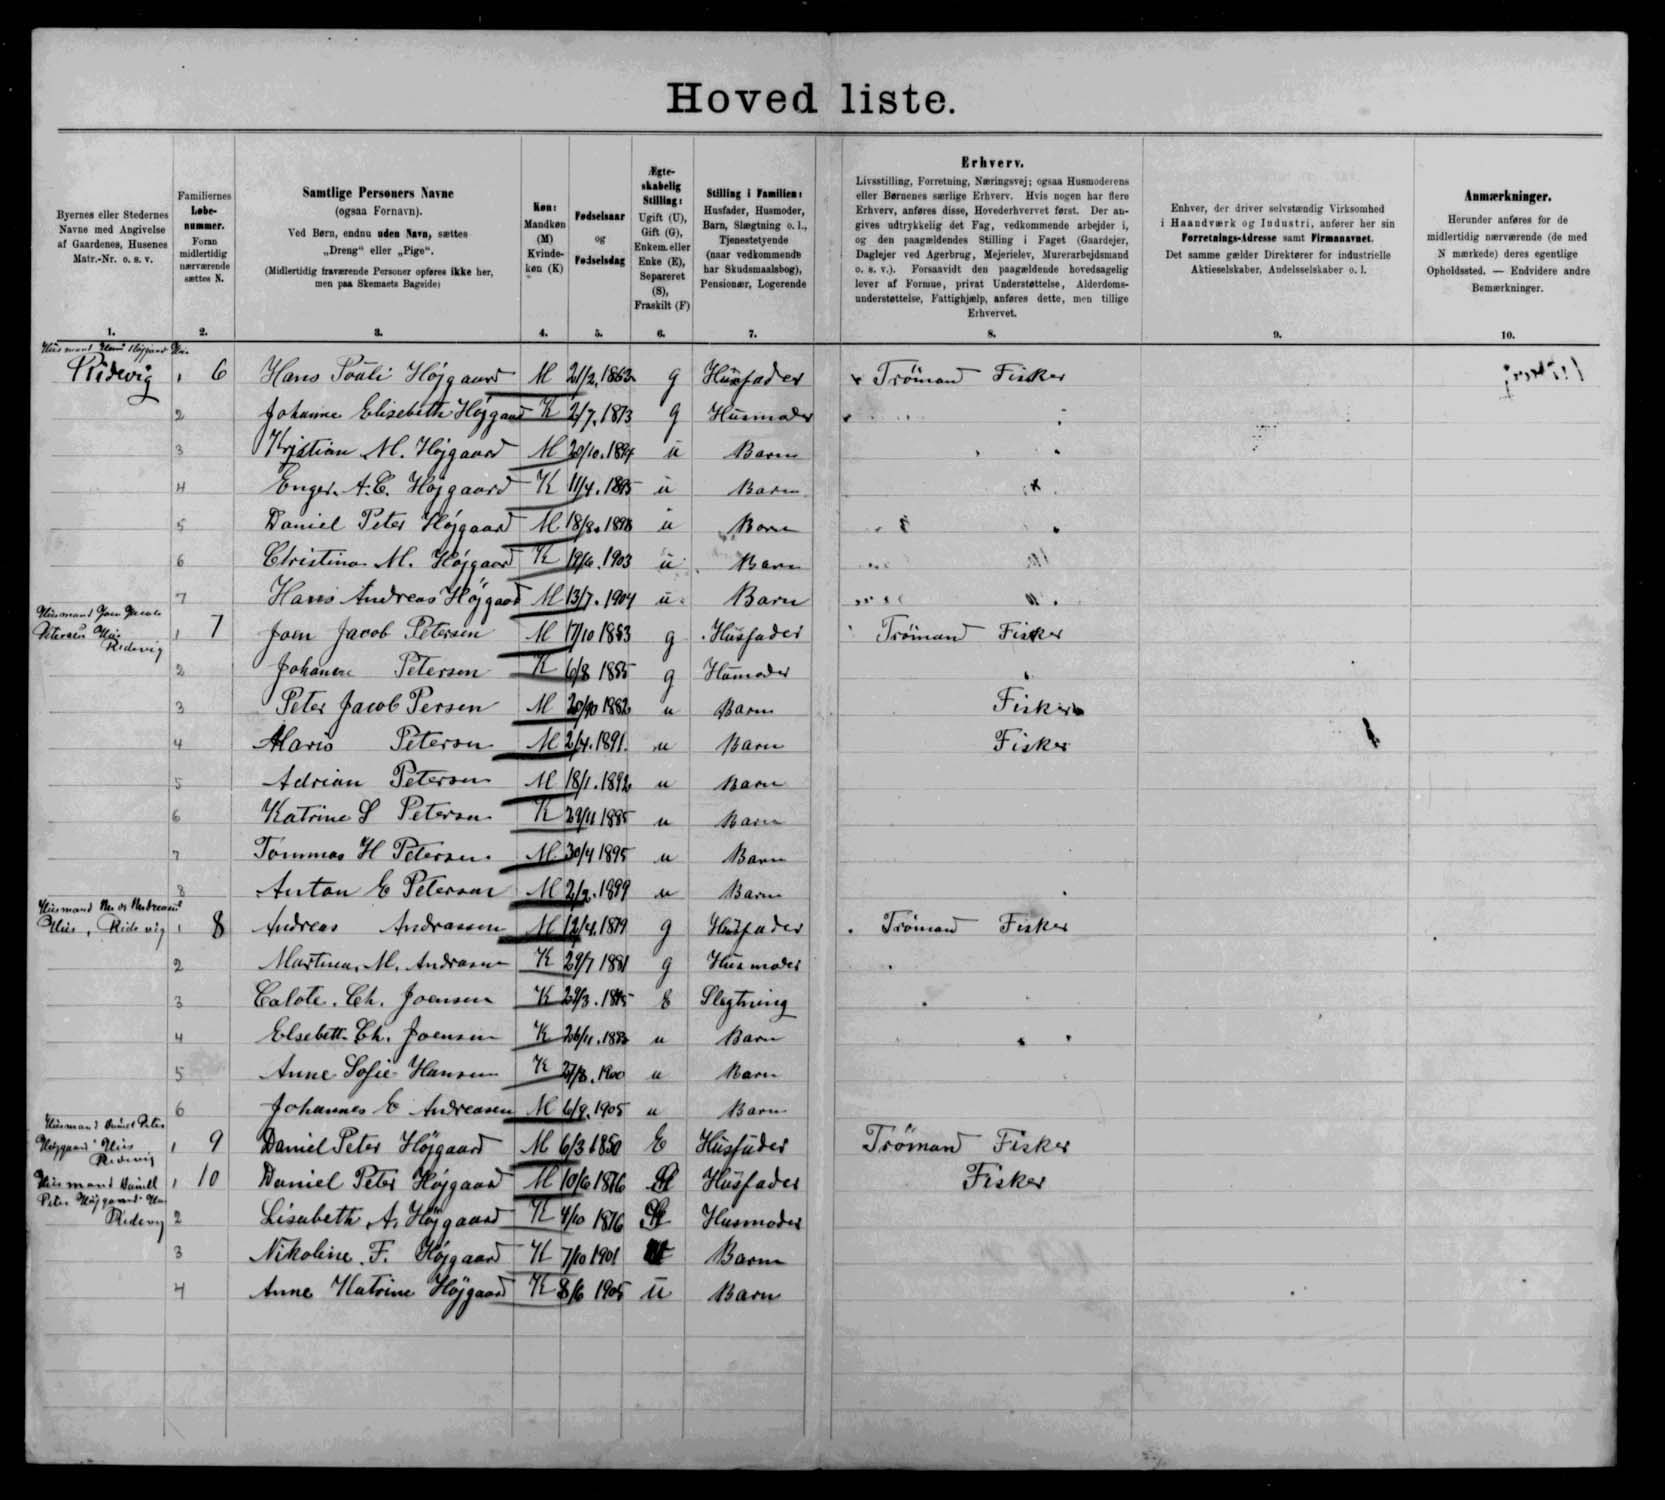 Hoved liste.
Byernes eller Stedernes
Navne med Angivelse
af Gaardenes, Husenes
Matr.-Nr. o. s. v.
1.
Familiernes
Løbe-
nummer.
Foran
midlertidig
nærværende
sættes N.
2.
Samtlige Personers Navne
(ogsaa Fornavn).
Ved Børn, endnu uden Navn, sættes
„Dreng" eller „Pige".
(Midlertidig fraværende Personer opføres ikke her,
men paa Skemaets Bagside)
3.
Køn:
Mandkøn
(M)
Kvinde-
køn (K)
4.
Fødselsaar
og
Fødselsdag
5.
Ægte-
skabelig
Stilling:
Ugift (U),
Gift (G),
Enkem. eller
Enke (E),
Separeret
(S),
Fraskilt (F)
6.
Stilling i Familien:
Husfader, Husmoder,
Barn, Slægtning o. l.,
Tjenestetyende
(naar vedkommende
har Skudsmaalsbog),
Pensionær, Logerende
7.
Erhverv.
Livsstilling, Forretning, Næringsvej; ogsaa Husmoderens
eller Børnenes særlige Erhverv. Hvis nogen har flere
Erhverv, anføres disse, Hovederhvervet først. Der an-
gives udtrykkelig det Fag, vedkommende arbejder i,
og den paagældendes Stilling i Faget (Gaardejer,
Daglejer ved Agerbrug, Mejerielev, Murerarbejdsmand
o. s. v.). Forsaavidt den paagældende hovedsagelig
lever af Formue, privat Understøttelse, Alderdoms-
understøttelse, Fattighjælp, anføres dette, men tillige
Erhvervet.
8.
Enhver, der driver selvstændig Virksomhed
i Haandværk og Industri, anfører her sin
Forretnings-Adresse samt Firmanavnet.
Det samme gælder Direktører for industrielle
Aktieselskaber, Andelsselskaber o. l.
9.
Anmærkninger.
Herunder anføres for de
midlertidig nærværende (de med
N mærkede) deres egentlige
Opholdssted. — Endvidere andre
Bemærkninger.
10.
Husmand Hans Højgaard Hus
Ridevig 1 6 Hans Pouli Højgaard M 21/2.1863 g Husfader Trömand Fisker
2 Johanne Elisebeth Højgaard K 2/7.1873 g Husmoder
3 Kristian M. Højgaard M 20/10.1894 u Barn
4 Enger. A.C. Højgaard K 11/4.1895 u Barn
5 Daniel Peter Højgaard M 18/8.1898 u Barn
6 Christina M. Højgaard K 19/6.1903 u Barn
7 Hans Andreas Højgaard M 13/7.1904 u Barn
Husmand Joen Jacob
Petersen Hus
Ridevig
1 7 Joen Jacob Petersen M 17/10 1853 g Husfader Trömand Fisker
2 Johanne Petersen K 6/8 1855 g Husmoder
3 Peter Jacob Persen M 20/10 1882 u Barn Fisker
4 Maris Petersn M 2/4.1891. u Barn Fisker
5 Adrian Petersen M 18/1.1892 u Barn
6 Katrine S Petersn K 29/11 1885 u Barn
7 Tommas H Petersen. M 30/4 1895 u Barn
8 Anton E Petersen M 2/2.1899 u Barn
Husmand Andreasens
Hus, Ridevig 1 8 Andreas Andrassen M 12/4.1879 g Husfader Trömand Fisker
2 Martina. M. Andrasn K 29/7 1881 g Husmoder
3 Calote. Ch. Joensen K 29/3.1845 E Slegtning
4 Elsebett. Ch. Joensen K 26/11.1883 u Barn
5 Anne Sofie Hansen K 27/8.1900 u Barn
6 Johannes E Andreasen M 6/9.1905 u Barn
Husmand Daniel Peter
Højgaard Hus
Ridevig
1 9 Daniel Peter Højgaard M 6/3 1850 E Husfader Trömand Fisker
Husmand Daniel
Peter Højgaard Hus
Ridevig
1 10 Daniel Peter Højgaard M 10/6 1876 Husfader Fisker
2 Lisabeth A. Højgaard K 4/10 1876 Husmoder
3 Nikoline. F. Højgaard K 7/10 1901 Barn
4 Anne Katrine Højgaard K 8/6 1905 u Barn